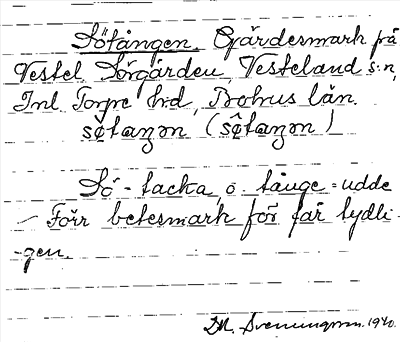 Sötången. Gärdesmark på
Vestel Sörgården, Vesteland s:n,
Inl. Torpe h:d, Bohus län.
sø̂taŋən (sø̂taŋən)
Sö - tacka, o. tånge = udde
- Förr betesmark för får tydli-
-gen.
M. Svenungsson. 1940.